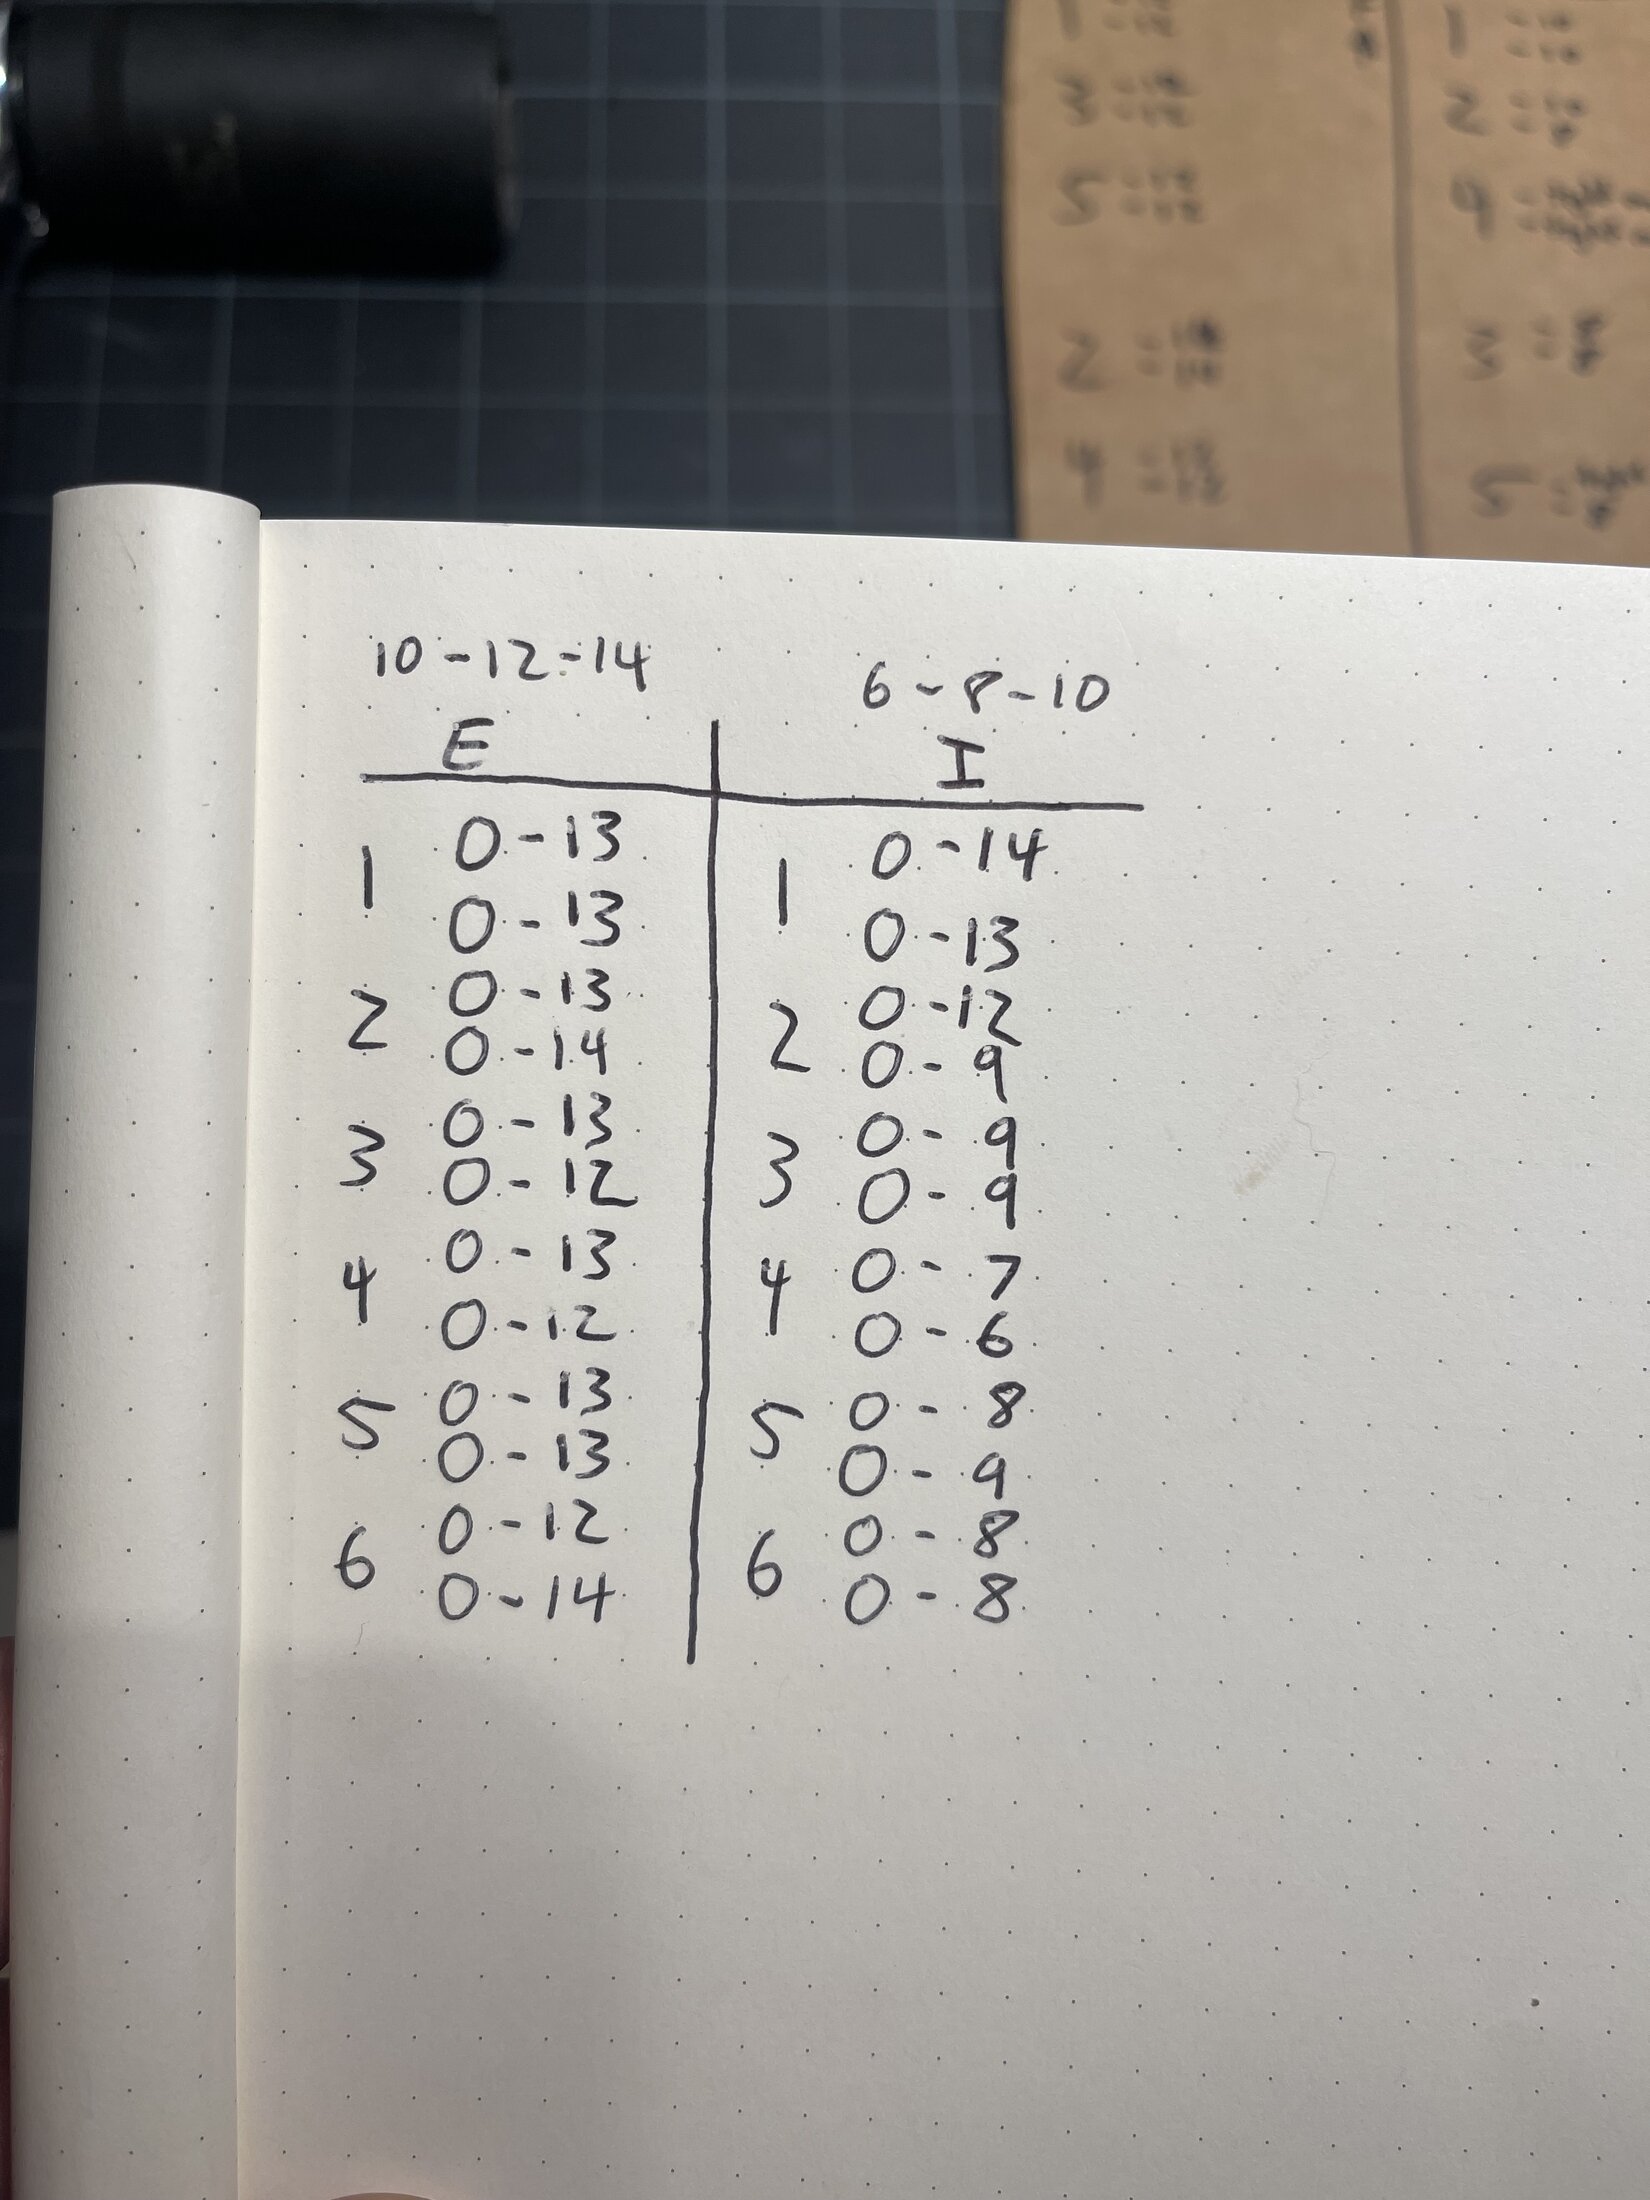 10-12-14
6-8-10
E
I
1
0-13
0-13
2
0-13
0-14
3
0-13
0-12
4
0-13
0-12
5
0-13
0-13
6
0-12
0-14
1
0-14
0-13
2
0-12
0-9
3
0-9
0-9
4
0-7
0-6
5
0-8
0-9
6
0-8
0-8
1
3
5
2
4
1
2
4
3
5